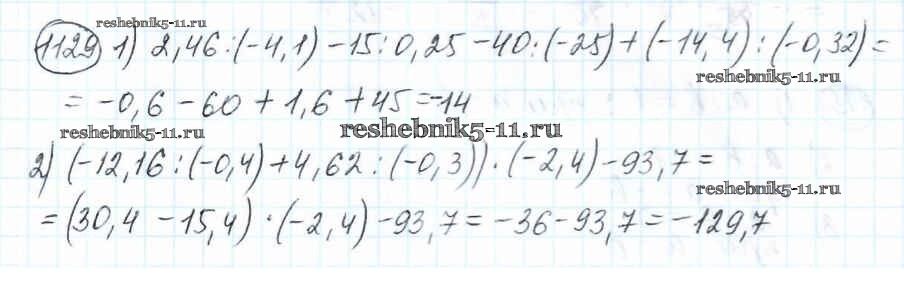 reshebnik5-11.ru
1129 1) 2,46:(-4,1)-15:0,25-40:(-25)+(-14,4):(-0,32)=
reshebnik5-11.ru
= -0,6-60+1,6+45=-14
reshebnik5-11.ru
reshebnik5-11.ru
2) (-12,16:(-0,4)+4,62:(-0,3))·(-2,4)-93,7=
reshebnik5-11.ru
=(30,4-15,4)·(-2,4)-93,7=-36-93,7=-129,7